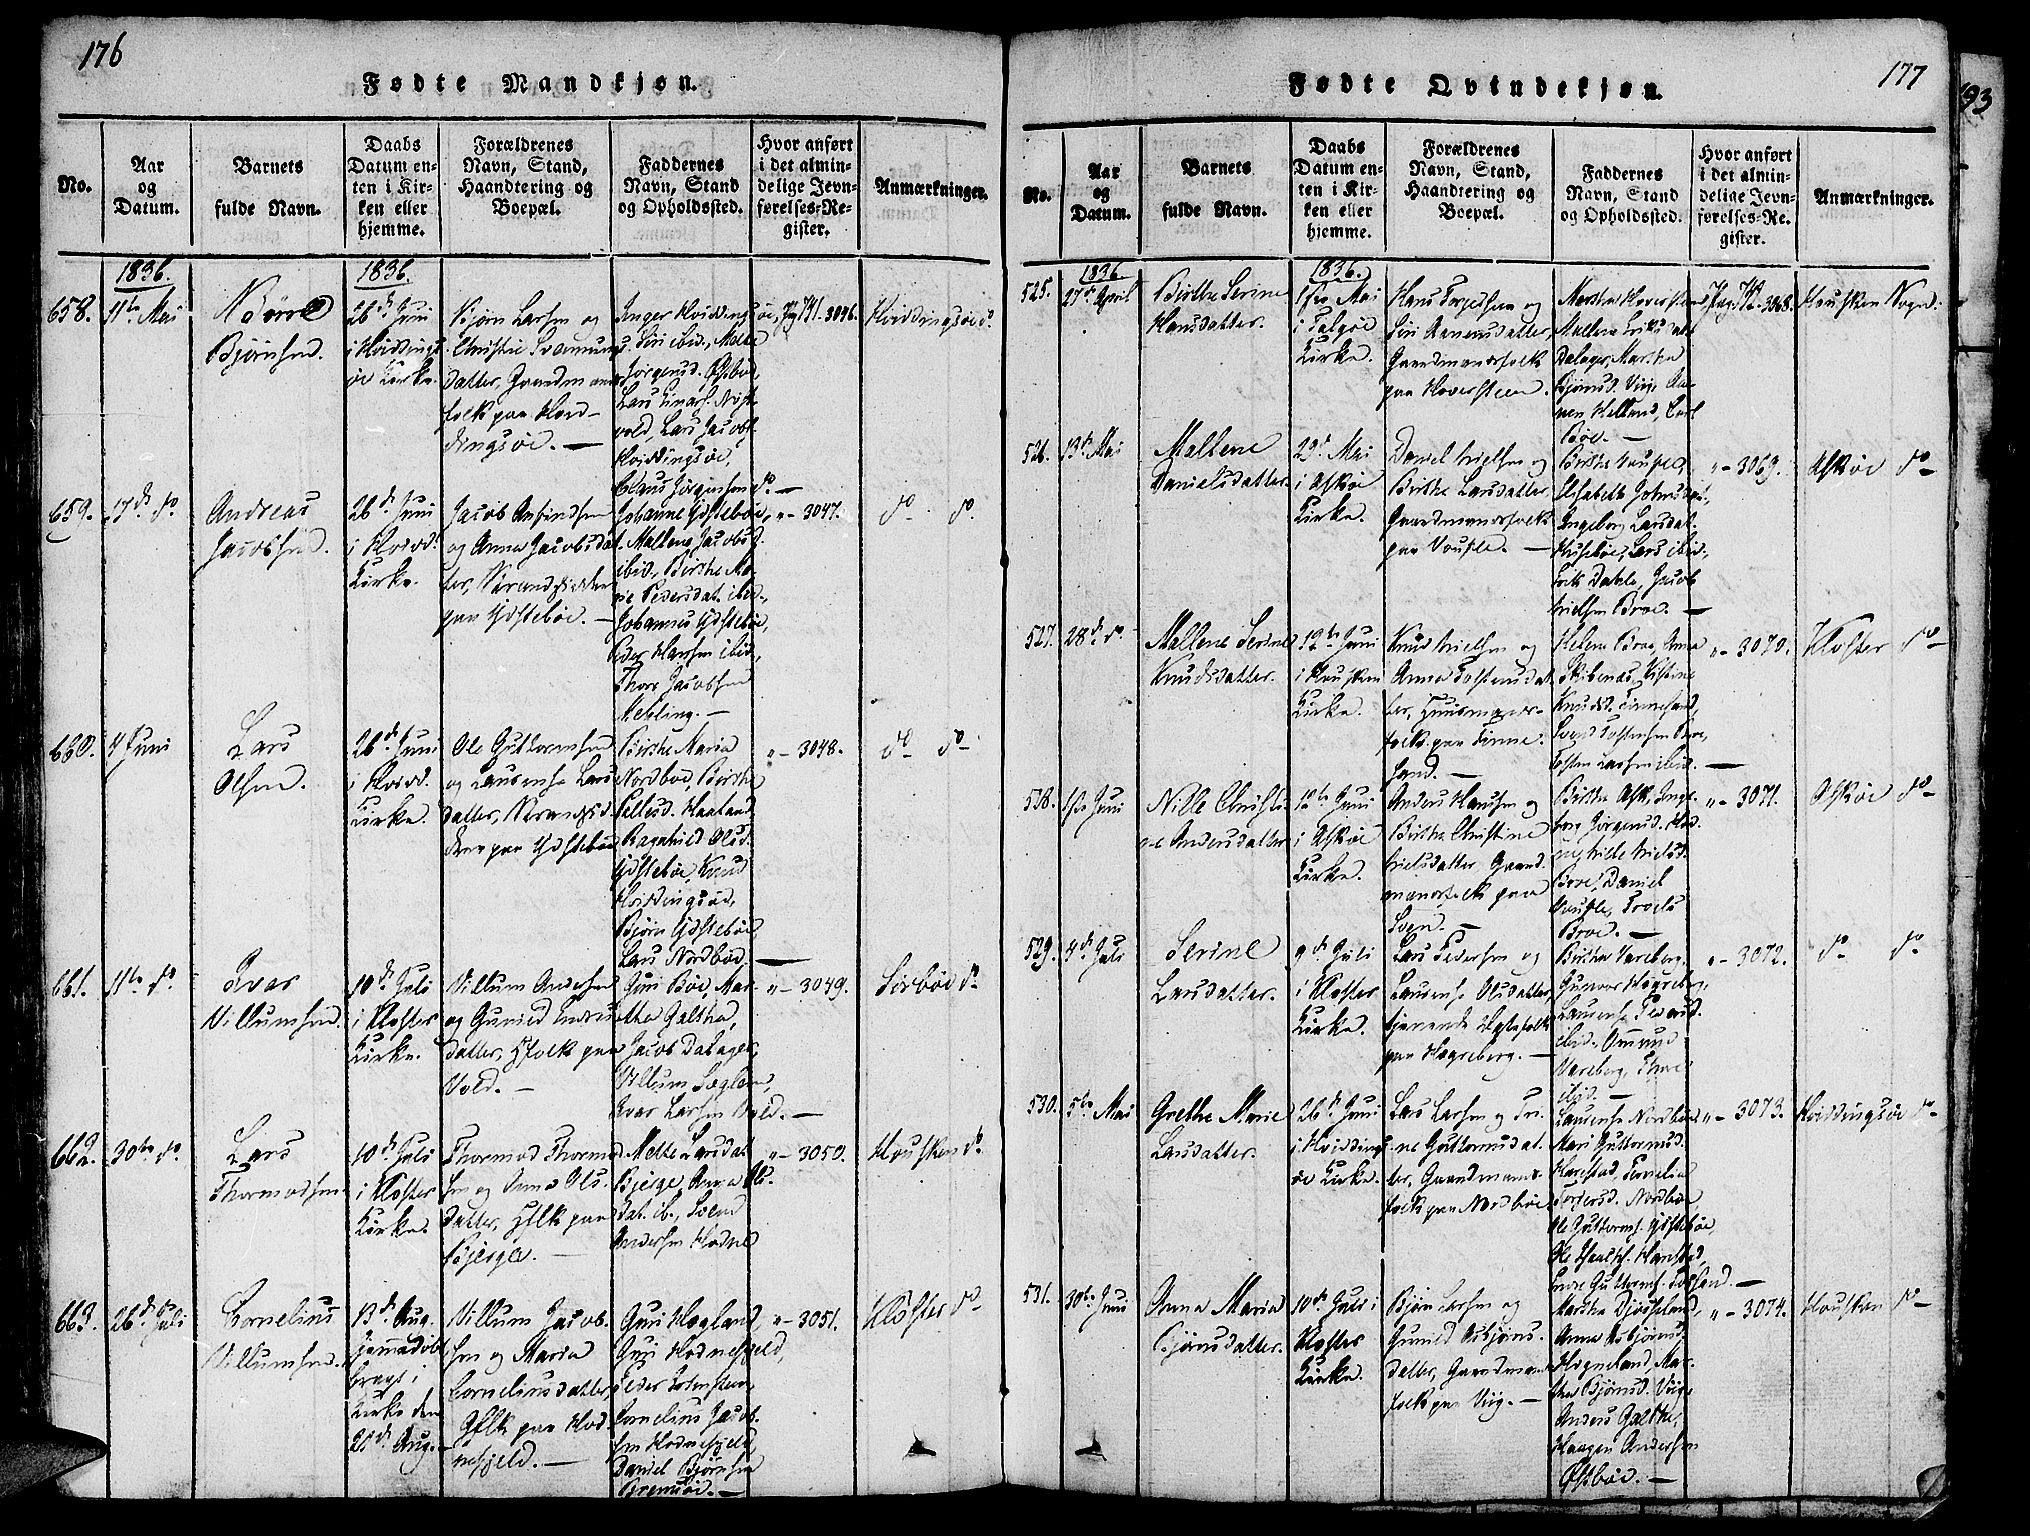 176
Fødte Mandkjøn.
No.
Aar
og
Datum.
Barnets
fulde Navn.
Daabs
Datum en-
ten i Kir-
ken eller
hjemme.
Forældrenes
Navn, Stand,
Haandtering og
Boepæl.
Faddernes
Navn, Stand
og Opholdssted.
Hvor anført
i det almin-
delige Jevn-
førelses-Re-
gister.
Anmærkninger.
1836.
1836.
658.
11te Mai
Bjørnsen.
26de Juni
i Hviddings
øe Kirke.
Bjørn Larsen og
Christie Svennungs
datter, Gaardmands
folk paa Hvid-
dingsøe. —
Inger Hviddingsøe,
Siri ibid., Malle
Jørgensd. Østbøe,
Lars Einars. Nøst
vold, Lars Jacobs.
Hviddingsøe,
Claus Jørgensen do. —
Pag. 741. 3046.
Hviddingsøe S.
659.
17de do.
Andreas
Jacobsen.
26de Juni
i Hvidd.
Kirke.
Jacob Amundsen
og Anna Jacobsdat
ter, Strandsidder
paa Udstebøe. —
Johanne Udstebøe,
Mallene Jacobsd.
ibid., Birthe Ma-
rie Pedersdat. ibid.,
Johannes Udstebøe,
Peder Hansen ibid.,
Thore Jacobsen
Mehling. —
" — 3047.
do. do.
660.
4 Juni
Lars
Olsen.
26de Juni
i Hvidd.
Kirke.
Ole Guttormsen
og Laurense Lars
datter, Strandsid
dere paa Udstebøe
Birthe Maria
Nordbøe, Birthe
Tillesd. Haaland
Ragnhild Olsd.
Udstebøe, Knud
Hviddingsøe,
Bjørn Udstebøe,
Lars Nordbøe. —
" — 3048.
do do —
661.
11te do.
Ivar
Villumsen.
10de Juli
i Kloster
Kirke.
Villum Andersen
og Gunild Endres
datter, Gfolk paa
Vold. —
Guri Bøe, Mar-
tha Galtha,
Jacob Dalager,
Villum Søgland,
Ivar Larsen Vold. —
" — 3049.
Sørbøe do.
662.
30te do.
Lars
Thormodsen
10de Juli
i Kloster
Kirke.
Thormod Thormod
sen og Anna Ols-
datter, Gflk paa
Bjerge. —
Mette Larsdat.
Bjerge, Anna Ols-
dat. ib., Svend
Andersen Hodne
" — 3050.
Houskens do.
663.
26de Juli
Cornelius
Villumsen.
13de Aug.
hjemmedøbt
bragt i
Kirke den
28de Aug.
Villum Jacob-
sen og Maria
Cornelius datter,
Gflk paa Hod-
nefjeld. —
Guri Hogland,
Guri Hodnefjeld,
Peder Holmsteen,
Cornelius Jacob-
sen Hodnefjeld,
Daniel Bjørnsen
Bremsøe. —
" — 3051.
Kloster do —
177
93
Fødte Qvindekjøn.
No.
Aar
og
Datum.
Barnets
fulde Navn.
Daabs
Datum en-
ten i Kir-
ken eller
hjemme.
Forældrenes
Navn, Stand,
Haandtering og
Boepæl.
Faddernes
Navn, Stand
og Opholdssted.
Hvor anført
i det almin-
delige Jevn-
førelses-Re-
gister.
Anmærkninger.
1836
1836.
525.
27de April
Birthe Serine
Hansdatter.
1ste Mai
i Talgøe
Kirke.
Hans Torjesen og
Siri Aanensdatter,
Gaardmandsfolk
paa Hoversteen.
Martha Hoversteen,
Mallene Eriksdat.
Dalager, Martha
Bjørnsd. Viig, Aa-
nen Helland, Carl
Bøe. —
Pag. 742 - 3068.
Housken Sogn.
526.
13de Mai
Mallene
Danielsdatter.
29de Mai
i Askøe
Kirke.
Daniel Nielsen og
Birthe Larsdatter,
Gaardmandsfolk
paa Voufle. —
Birthe Voufle,
Elisabeth Johnsdat.,
Ingeborg Larsdat.
Husebøe, Lars ibid.,
Erik Dahle, Jacob
Nielsen Broe. —
" — 3069.
Askøe do —
527.
28de do.
Mallene Serine
Knudsdatter.
12te Juni
i Housken
Kirke.
Knud Nielsen og
Anna Tostensdat
ter, Huusmands-
folk paa Finne-
sand. —
Helene Broe, Anna
Skibenæs, Kistine
Knudsd. Finnesand,
Svend Tostensen Broe,
Tosten Larsen ibid. —
" — 3070.
Kloster do —
528.
1ste Juni
Nille Christi-
ne Andersdatter
12te Juni
i Askøe
Kirke.
Anders Hansen og
Birthe Christine
Nielsdatter Gaard-
mandsfolk paa
Sven. —
Birthe Ask, Inge-
borg Jørgensd. Hod-
ne, Nille Nielsd.
Broe, Daniel
Voufle, Troels
Broe. —
" — 3071.
Askøe do —
529.
4de Juli
Serine
Larsdatter.
9de Juli
i Kloster
Kirke.
Lars Pedersen og
Laurense Olsdatter,
tjenende Ægtefolk
paa Hegreberg. —
Birthe Vareberg,
Gunvor Hegreberg,
Laurense Pedersd.
ibid., Omund
Vareberg, Thore
ibid. —
" — 3072.
do do
530.
5te Mai
Grethe Marie
Larsdatter.
26de Juni
i Hvidding
øe Kirke.
Lars Larsen og Tri-
ne Guttormsdat-
ter, Gaardmands-
folk paa Nordbøe.
Laurense Nordbøe
Mari Guttormsd.
Harestad, Pernelia
Torgersd. Nordbøe,
Ole Guttorms. Udstebøe,
" — 3073.
Hviddingsøe do —
531.
30te Juni
Anna Maria
Bjørnsdatter.
10de Juli i
Kloster
Kirke.
Bjørn Larsen og
Gunild Asbjørns-
datter, Gaardmands
folk paa Viig. —
Martha Djøseland,
Anna Asbjørnsd.
Hogneland, Mar-
tha Bjørnsd. Viig,
Anders Galthe,
Haagen Andersen
Østbøe. —
" — 3074.
Housken do —